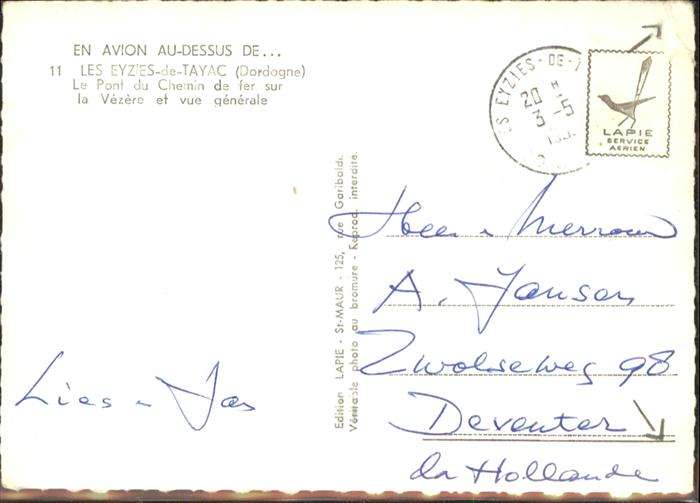 EN AVION AU-DESSUS DE...
11 LES EYZIES-de-TAYAC (Dordogne)
Le Pont du Chemin de fer sur
la Vézère et vue générale
EYZIES-DE-
20
3-5
LAPIE
SERVICE
AERIEN
Edition LAPIE - St-MAUR - 125, rue Garibaldi.
Véritable photo au bromure - Reprod. interdite.
Heer n Mevrouw
A. Jansen
Zwolseweg 98
Deventer
la Hollande
Lies n Jas